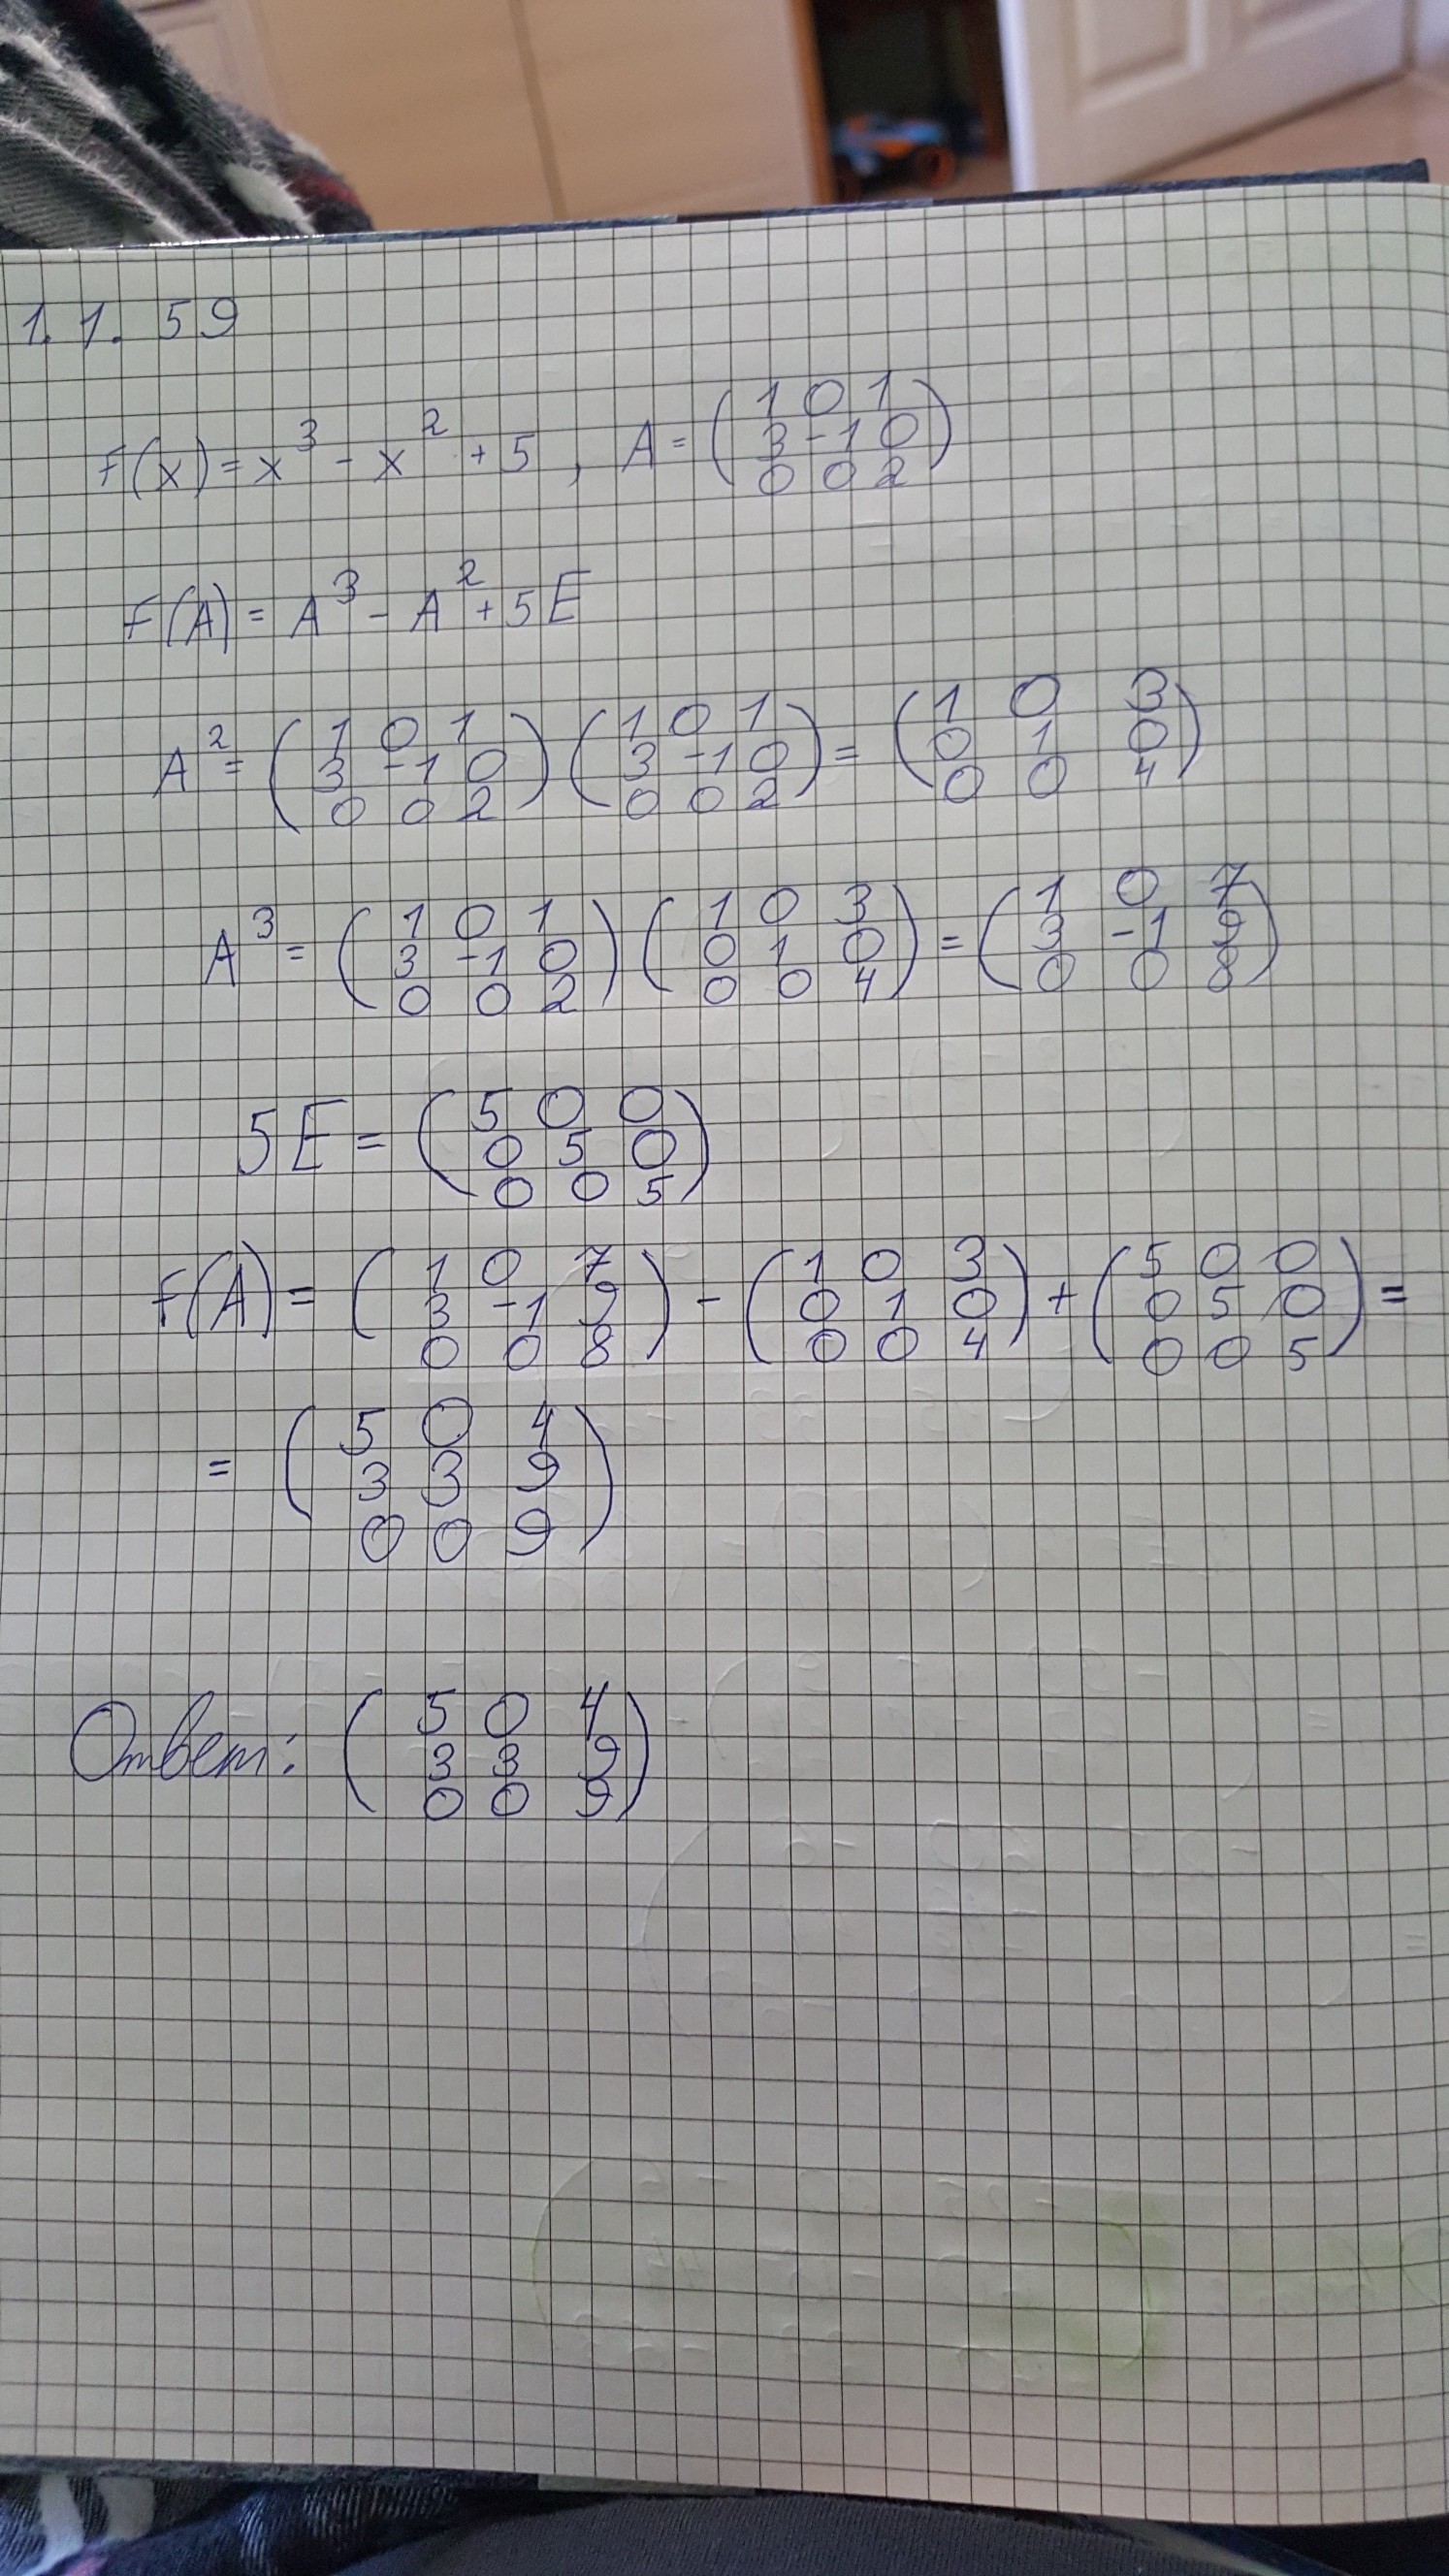 1.1.59
F(x) = x³ - x² + 5, A = (1 0 1
3 -1 0
0 0 2)
F(A) = A³ - A² + 5E
A² = (1 0 1
3 -1 0
0 0 2) (1 0 1
3 -1 0
0 0 2) = (1 0 3
0 1 0
0 0 4)
A³ = (1 0 1
3 -1 0
0 0 2) (1 0 3
0 1 0
0 0 4) = (1 0 7
3 -1 9
0 0 8)
5E = (5 0 0
0 5 0
0 0 5)
F(A) = (1 0 7
3 -1 9
0 0 8) - (1 0 3
0 1 0
0 0 4) + (5 0 0
0 5 0
0 0 5) =
= (5 0 4
3 3 9
0 0 9)
Ответ: (5 0 4
3 3 9
0 0 9)